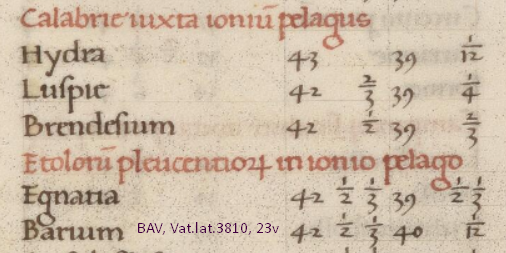 Calabrie iuxta ioniū pelagus
Hydra 43 39 1/12
Luſpie 42 2/3 39 1/4
Brendeſium 42 1/2 39 2/3
Etolorū pleucentioꝝ in ionio pelago
Egnatia 42 1/2 1/3 39 1/2 1/3
Barium 42 1/2 1/3 40 1/12
BAV, Vat.lat.3810, 23v